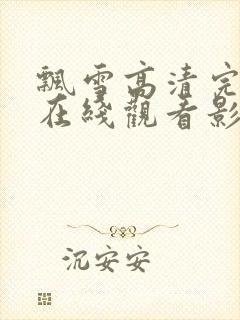 飄雪高清完
在綫觀看影
沉安安